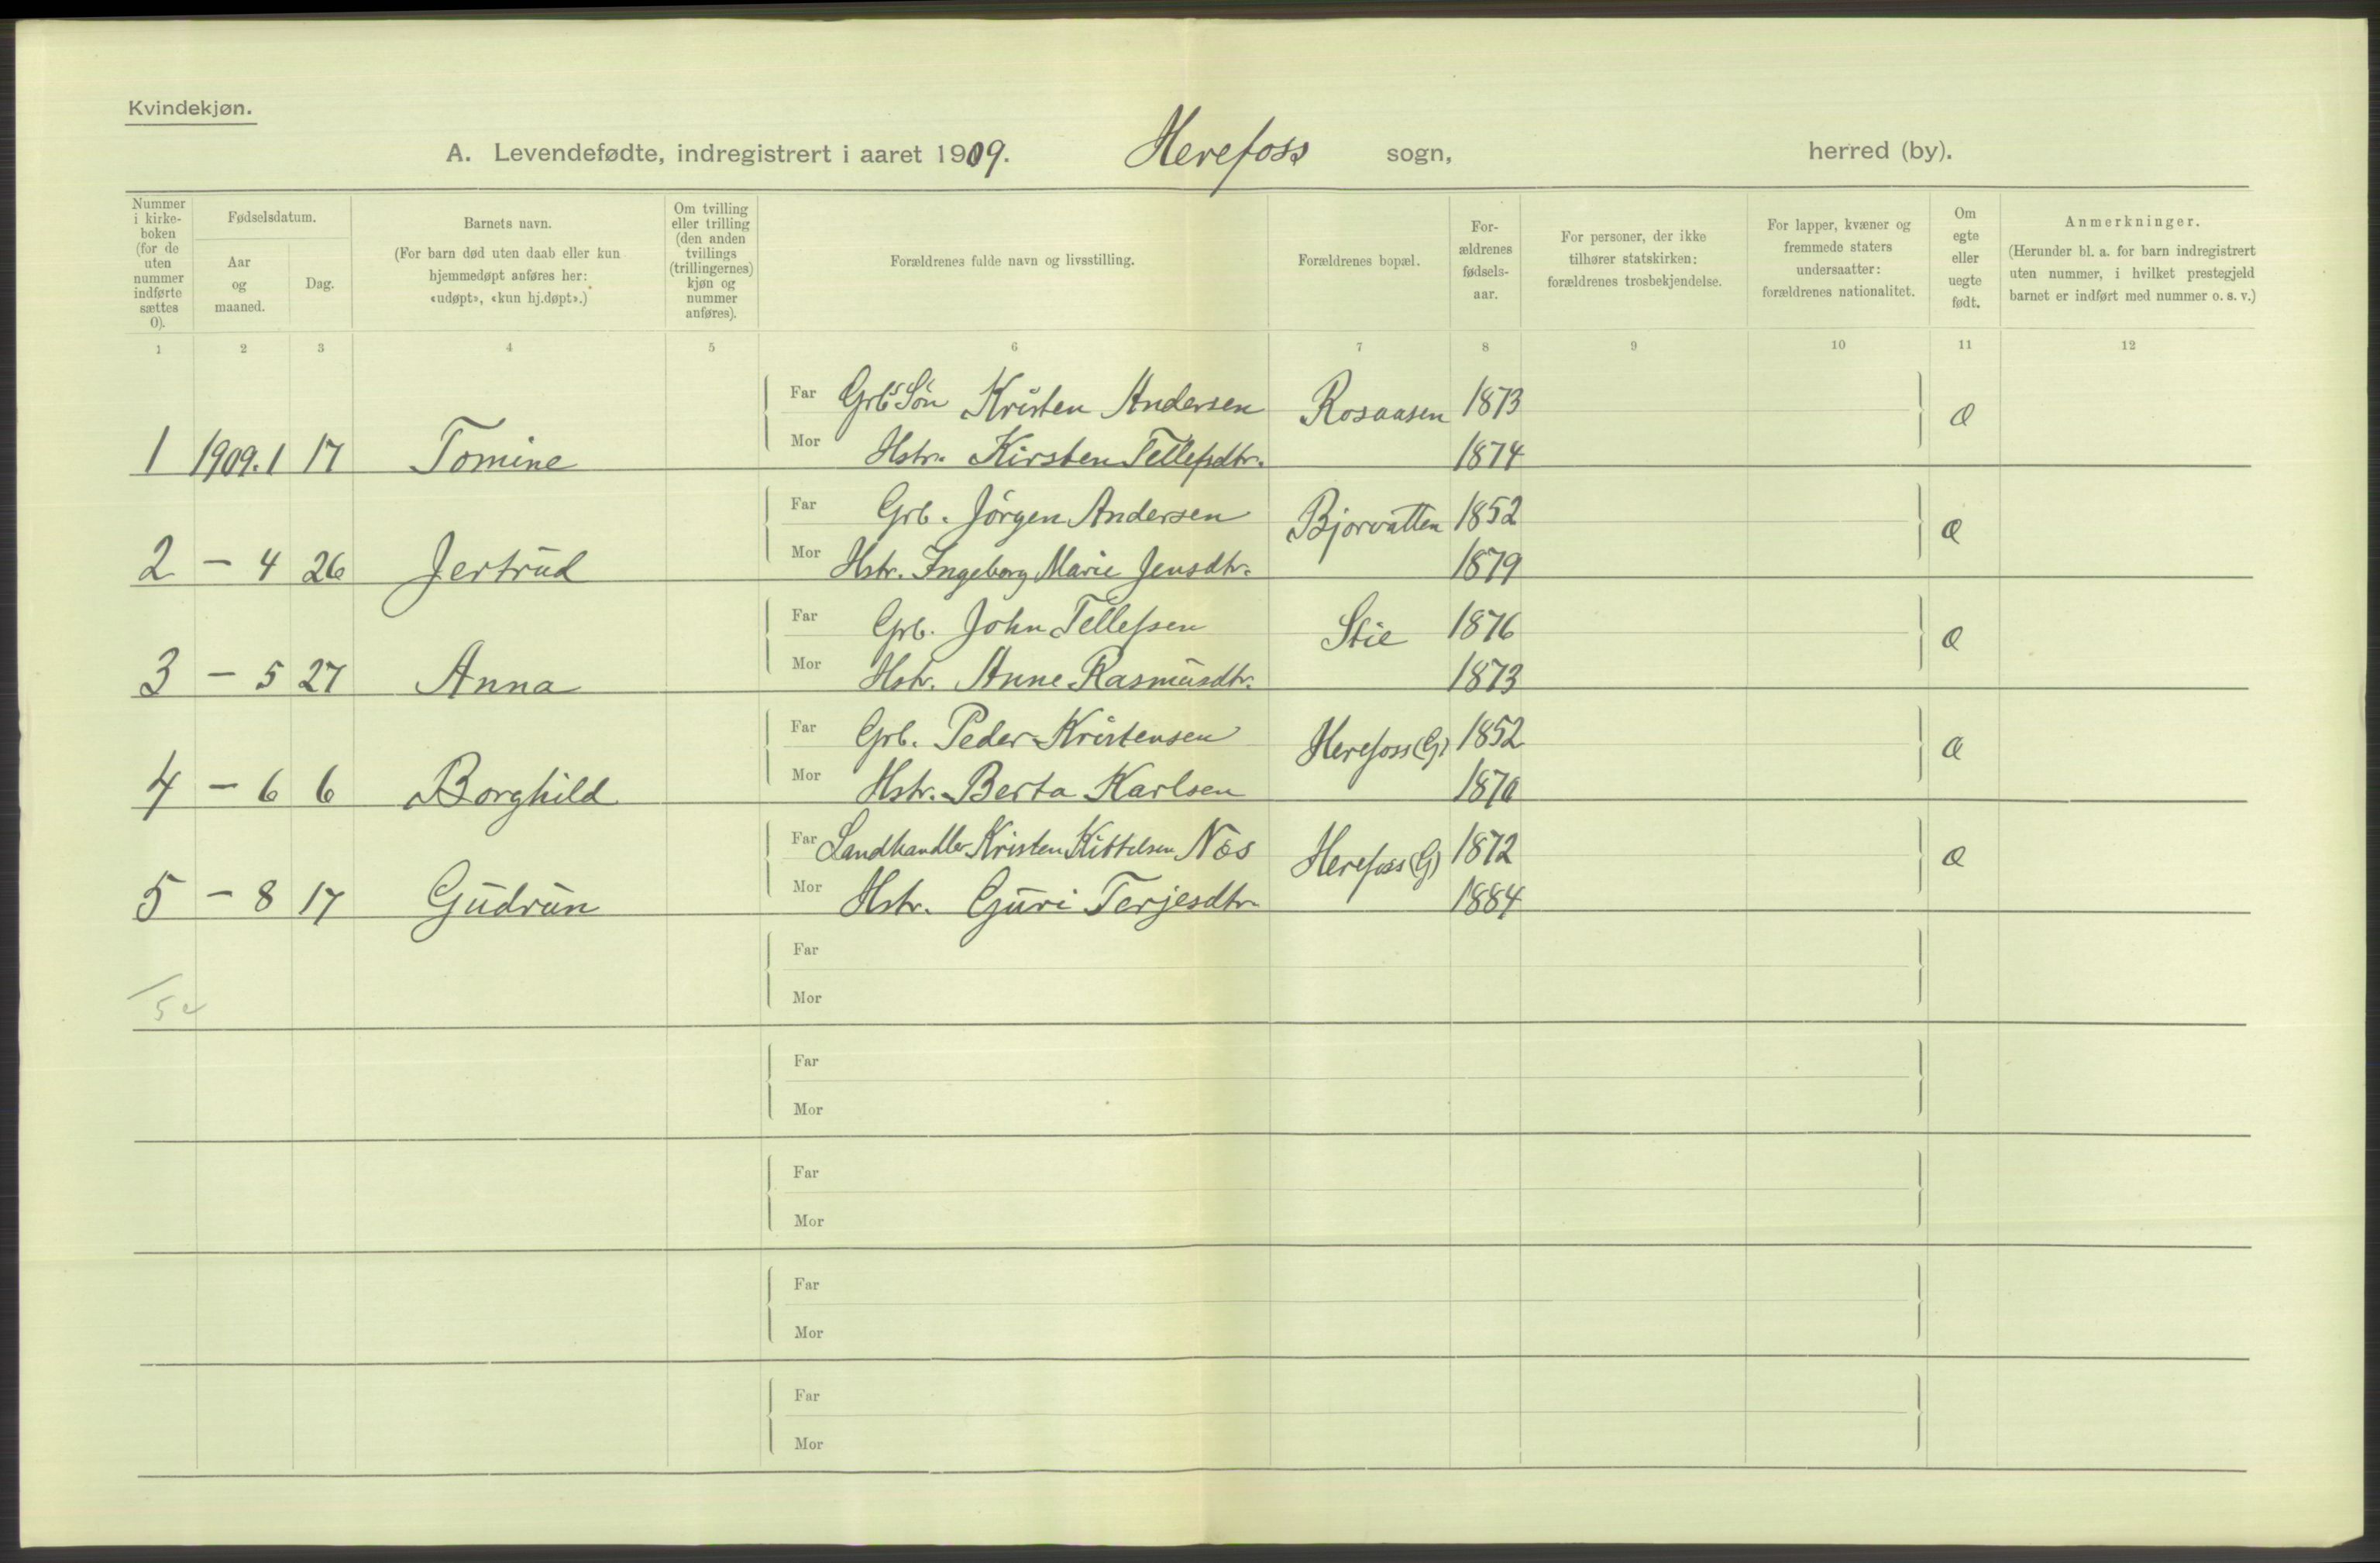 Kvindekjøn.
A. Levendefødte, indregistrert i aaret 1909. Herefoss sogn, herred (by).
Nummer i kirkeboken (for de uten nummer indførte sættes 0).
Fødselsdatum.
Aar og maaned.
Dag.
Barnets navn.
(For barn død uten daab eller kun hjemmedøpt anføres her: «udøpt», «kun hj.døpt».)
Om tvilling eller trilling (den anden tvillings (trillingernes) kjøn og nummer anføres).
Forældrenes fulde navn og livsstilling.
Forældrenes bopæl.
Forældrenes fødselsaar.
For personer, der ikke tilhører statskirken: forældrenes trosbekjendelse.
For lapper, kvæner og fremmede staters undersaatter: forældrenes nationalitet.
Om egte eller uegte født.
Anmerkninger.
(Herunder bl. a. for barn indregistrert uten nummer, i hvilket prestegjeld barnet er indført med nummer o. s. v.)
1 2 3 4 5 6 7 8 9 10 11 12
Far Grb. Søn Kristen Andersen Rosaasen 1873 æ
1 1909.1 17 Tomine Mor Hstr. Kirsten Tellefsdtr. 1874
Far Grb. Jörgen Andersen Bjorvatten 1852 æ
2 – 4 26 Jertrud Mor Hstr. Ingeborg Marie Jensdtr. 1879
Far Grb. John Tellefsen Stie 1876 æ
3 – 5 27 Anna Mor Hstr. Anne Rasmusdtr. 1873
Far Grb. Peder Kristensen Herefoss (G) 1852 æ
4 – 6 6 Borghild Mor Hstr. Berta Karlsen 1870
Far Landhandler Kristen Kittelsen Næs Herefoss (G) 1872 æ
5 – 8 17 Gudrun Mor Hstr. Guri Terjesdtr. 1884
Far
5
Mor
Far
Mor
Far
Mor
Far
Mor
Far
Mor